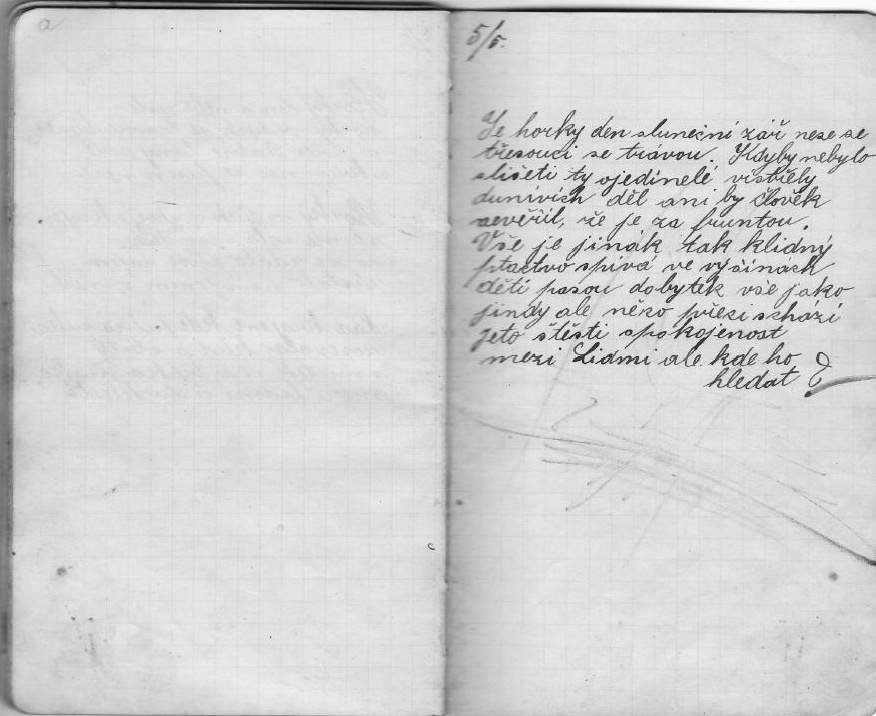 a
5/5.
Je horky den sluneční zář nese se
třesouci se trávou. Kdyby nebylo
slišeti ty ojedinelé vistřely
dunivich děl ani by člověk
nevěřil, že je za fruntou.
Vše je jinák tak klidný
ptactvo spivá ve vyšinách
děti pasou dobytek vše jako
jindy ale něco přeci scházi
jeto štěsti spokojenost
mezi Lidmi ale kde ho
hledat ?